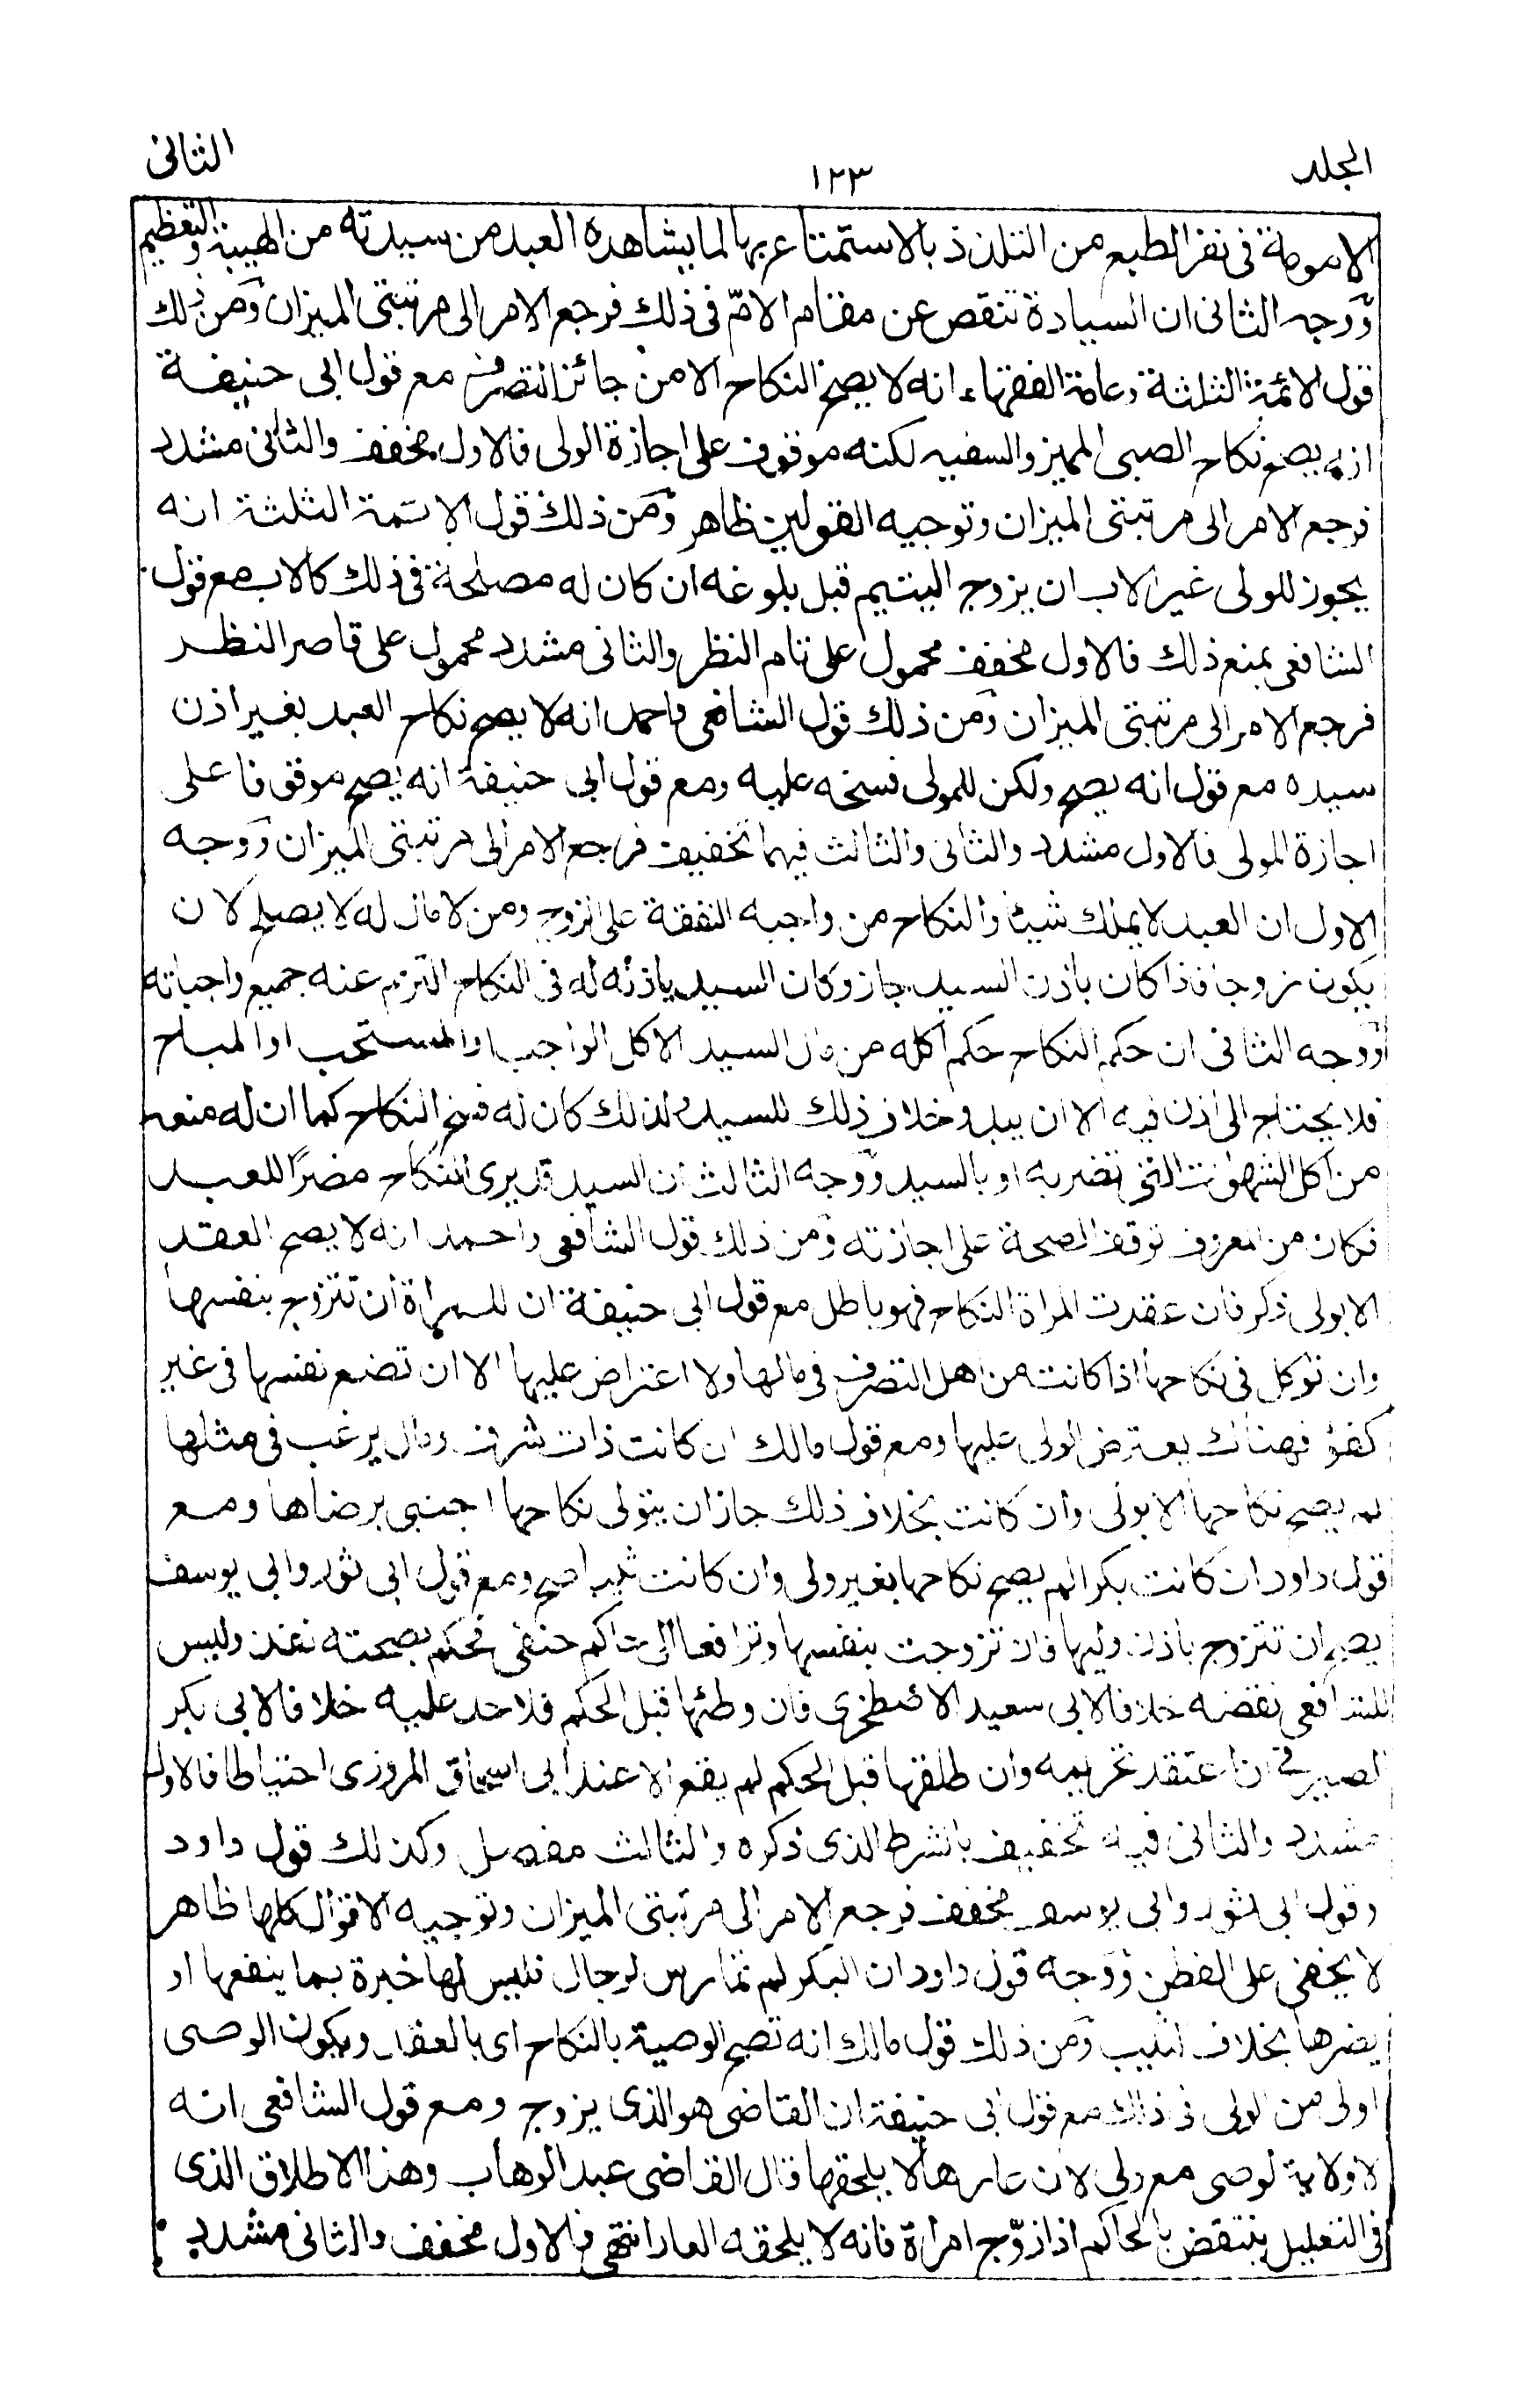 المجلد
١٢٣
الثانى
الامومة فى نفر الطبع من التلذذ بالاستمتاع بها لما يشاهده العبد من سيدته من الهيبة والتعظيم
ووجه الثانى ان السيادة تنقص عن مقام الامّ فى ذلك فرجع الامر الى مرتبتى الميزان ومن ذلك
قول الائمة الثلثة وعامة الفقهاء انه لا يصح النكاح الا من جائز التصرف مع قول ابى حنيفة
انه يصح نكاح الصبى المميز والسفيه لكنه موقوف على اجازة الولى فالاول مخفف والثانى مشدد
فرجع الامر الى مرتبتى الميزان وتوجيه القولين ظاهر ومن ذلك قول الائمة الثلثة انه
يجوز للولى غير الاب ان يزوج اليتيم قبل بلوغه ان كان له مصلحة فى ذلك كالاب مع قول
الشافعى بمنع ذلك فالاول مخفف محمول على تام النظر والثانى مشدد محمول على قاصر النظر
فرجع الامر الى مرتبتى الميزان ومن ذلك قول الشافعى واحمد انه لا يصح نكاح العبد بغير اذن
سيده مع قول انه يصح ولكن للمولى فسخه عليه ومع قول ابى حنيفة انه يصح موقوفا على
اجازة المولى فالاول مشدد والثانى والثالث فيهما تخفيف فرجع الامر الى مرتبتى الميزان ووجه
الاول ان العبد لا يملك شيئا والنكاح من واجبه النفقة على الزوج ومن لا مال له لا يصلح لان
يكون زوجا فاذا كان باذن السيد جاز وكان السيد باذنه له فى النكاح التزم عنه جميع واجباته
ووجه الثانى ان حكم النكاح حكم اكله من مال السيد الاكل الواجب او المستحب او المباح
فلا يحتاج الى اذن فيه الا ان يبدو خلاف ذلك للسيد ولذلك كان له فسخ النكاح كما ان له منعه
من اكل الشهوات التى تضر به او بالسيد ووجه الثالث ان السيد قد يرى النكاح مضرًا للعبد
فكان من المعروف توقف الصحة على اجازته ومن ذلك قول الشافعى واحمد انه لا يصح العقد
الا بولى ذكر فان عقدت المراة النكاح فهو باطل مع قول ابى حنيفة ان للمراة ان تتزوج بنفسها
وان توكل فى نكاحها اذا كانت من اهل التصرف فى مالها ولا اعتراض عليها الا ان تضع نفسها فى غير
كفؤ فهناك يعترض الولى عليها ومع قول مالك ان كانت ذات شرف ومال يرغب فى مثلها
لم يصح نكاحها الا بولى وان كانت بخلاف ذلك جاز ان يتولى نكاحها اجنبى برضاها ومع
قول داود ان كانت بكرا لم يصح نكاحها بغير ولى وان كانت ثيبا صح ومع قول ابى ثور وابى يوسف
يصح ان تتزوج باذن وليها فان تزوجت بنفسها وترافعا الى حاكم حنفى فحكم بصحته نفذ وليس
للشافعى نقضه خلافا لابى سعيد الاصطخرى فان وطئها قبل الحكم فلا حد عليه خلافا لابى بكر
الصيرفى ان اعتقد تحريمه وان طلقها قبل الحكم لم يقع الا عند ابى اسحاق المروزى احتياطا فالاول
مشدد والثانى فيه تخفيف بالشرط الذى ذكره والثالث مفصل وكذلك قول داود
وقول ابى ثور وابى يوسف مخفف فرجع الامر الى مرتبتى الميزان وتوجيه الاقوال كلها ظاهر
لا يخفى على الفطن ووجه قول داود ان البكر لم تمارس الرجال فليس لها خبرة بما ينفعها او
يضرها بخلاف الثيب ومن ذلك قول مالك انه تصح الوصية بالنكاح اى بالعقد ويكون الوصى
اولى من الولى فى ذلك مع قول ابى حنيفة ان القاضى هو الذى يزوج ومع قول الشافعى انه
لا ولاية لوصى مع ولى لان عارها لا يلحقها قال القاضى عبد الوهاب وهذا الاطلاق الذى
فى التعليل ينتقض بالحاكم اذا زوّج امراة فانه لا يلحقه العار انتهى فالاول مخفف والثانى مشدد